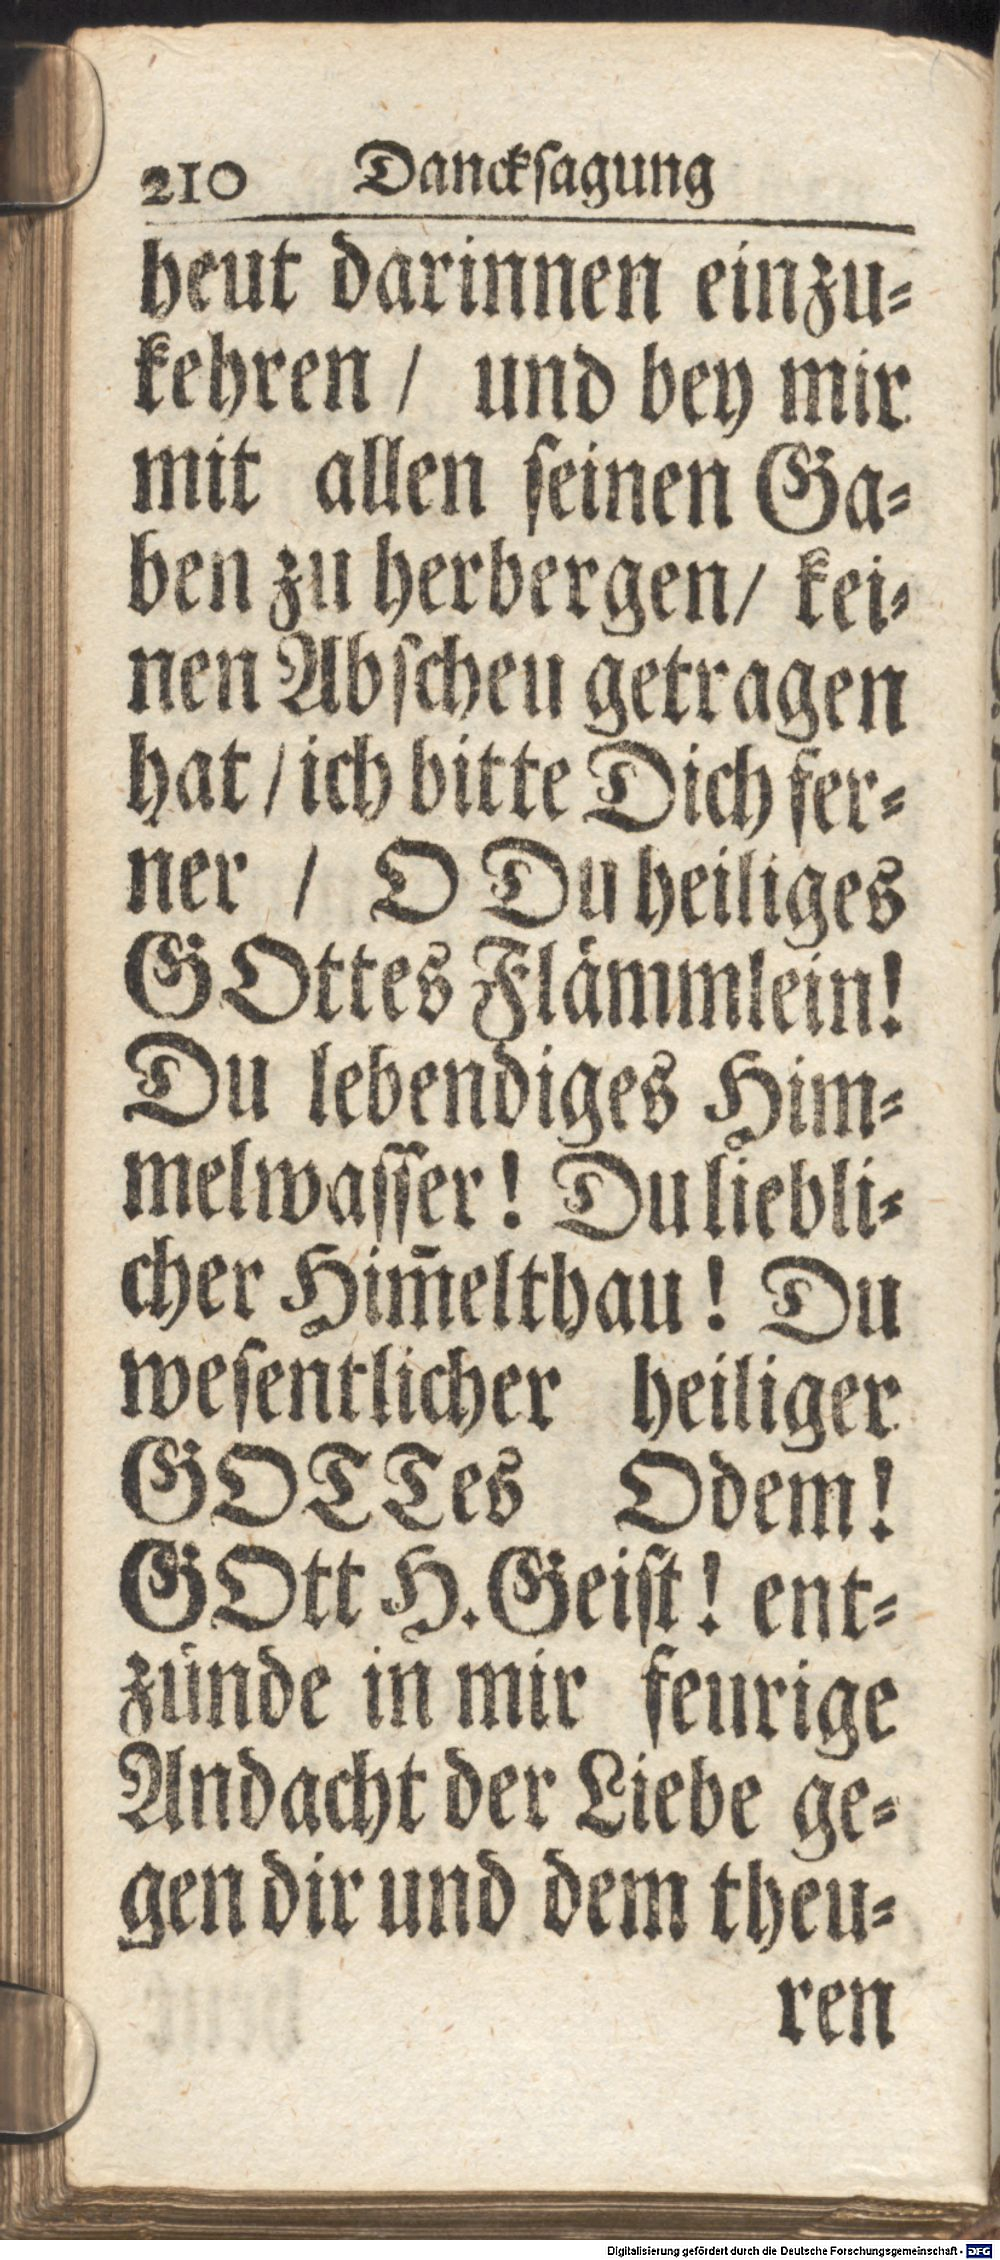 210 Danckſagung
heut darinnen einzu⸗
kehren / und bey mir
mit allen ſeinen Ga⸗
ben zu herbergen / kei⸗
nen Abſcheu getragen
hat / ich bitte Dich fer⸗
ner / O Du heiliges
GOttes Flämmlein!
Du lebendiges Him⸗
melwaſſer! Du liebli⸗
cher Him̅elthau! Du
weſentlicher heiliger
GOTTes Odem!
GOtt H. Geiſt! ent⸗
zünde in mir feurige
Andacht der Liebe ge⸗
gen dir und dem theu⸗
ren
Digitalisierung gefördert durch die Deutsche Forschungsgemeinschaft - DFG